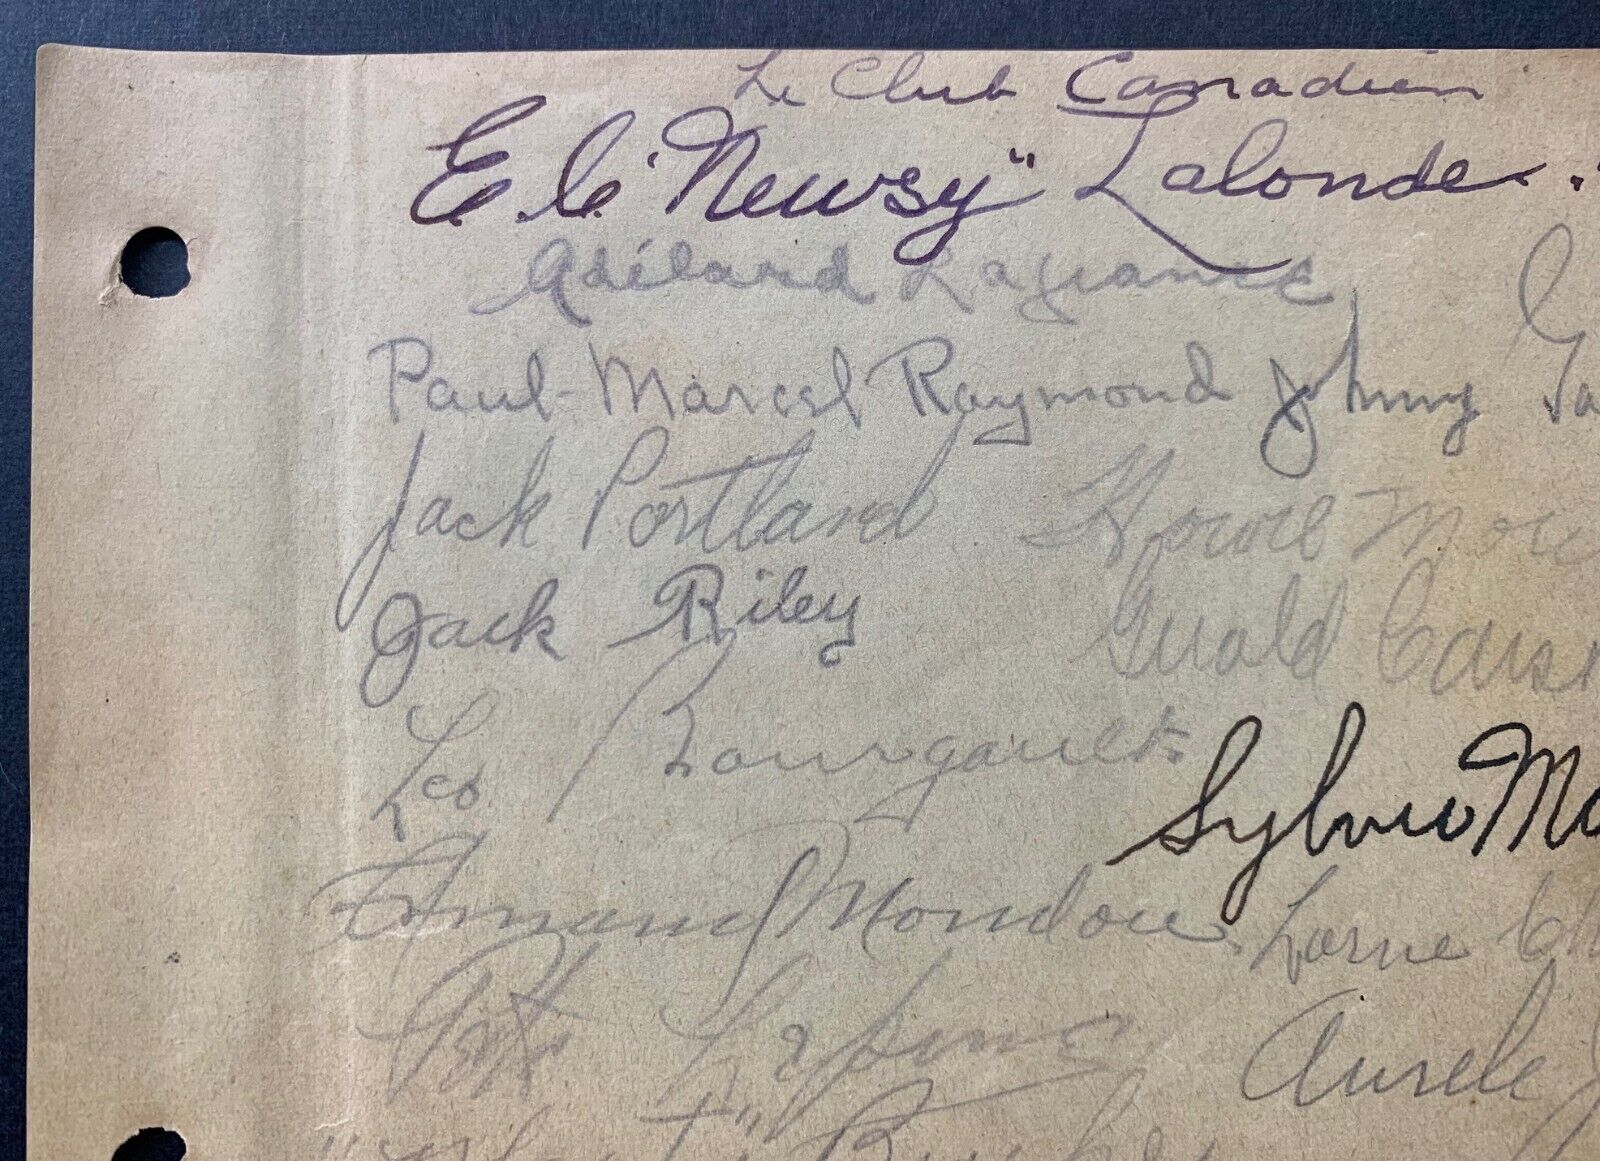 Le Club Canadien
E.C. "Newsy" Lalonde.
Adélard Lafrance
Paul-Marcel Raymond Johnny Ga
Jack Portland Howie More
Jack Riley Gerald Cars
Leo Bourgault.
Sylvio Ma
Armand Mondou. Lorne Ch
Pit Lepine Aurele J